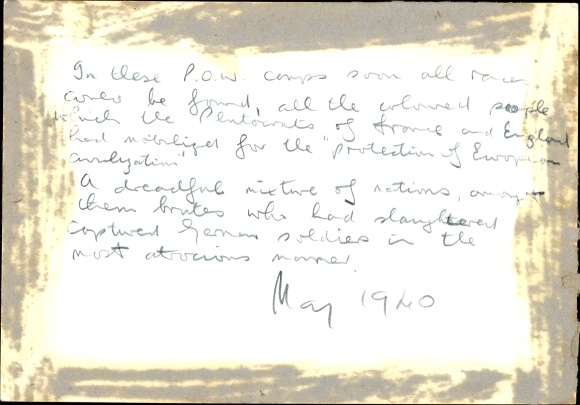 In these P.O.W. camps soon all races
could be found, all the coloured people
which the Plutocrats of France and England
had mobilized for the "protection of European
civilization"
A dreadful mixture of nations, amongst
them brutes who had slaughtered
captured German soldiers in the
most atrocious manner.
May 1940